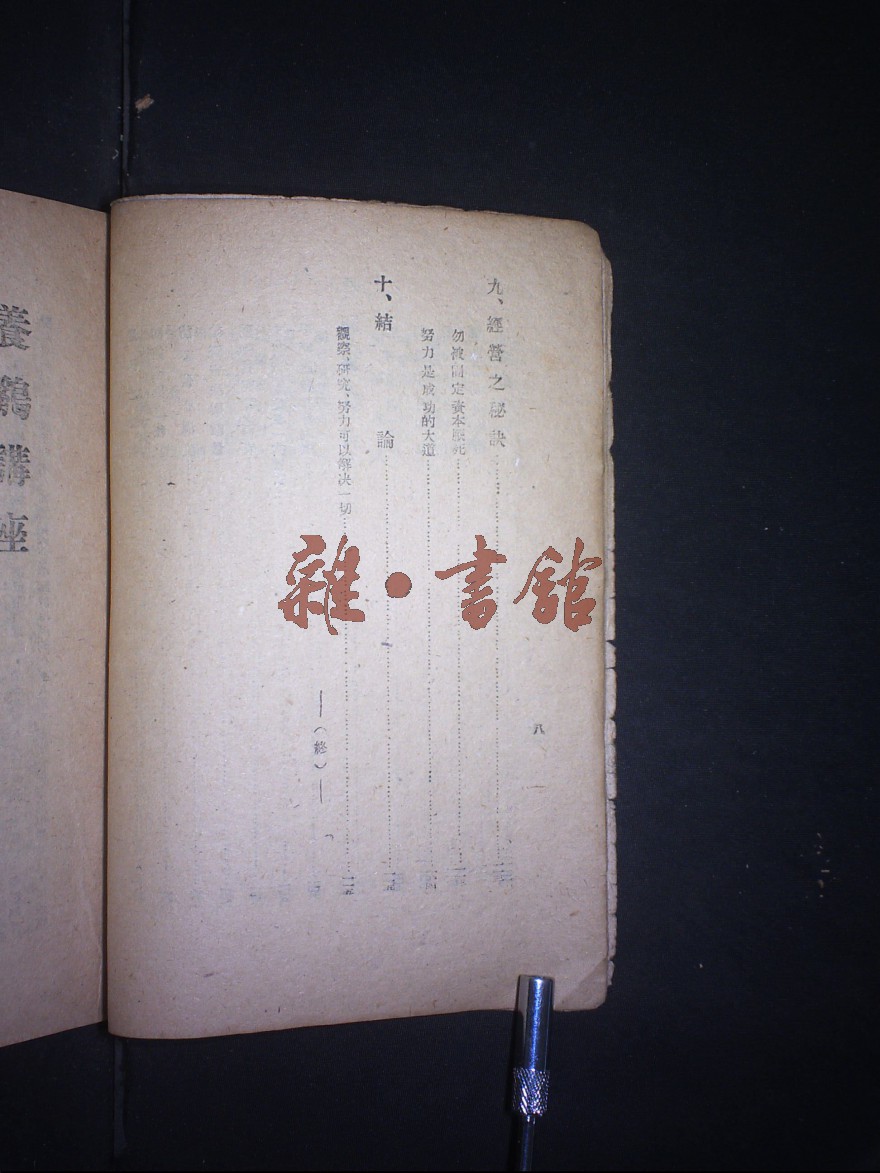 八
九、經營之秘訣
勿被固定資本壓死
努力是成功的大道
十、結論
觀察、研究、努力可以解決一切
（終）
養鷄講座
雜·書館